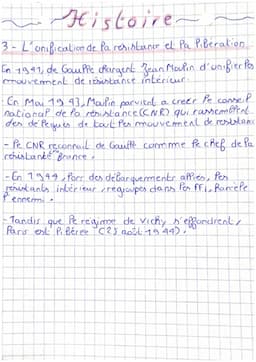 Histoire
3 - L'unification de la résistance et la libération.
En 1941, de Gaulle chargent Jean Moulin d'unifier les
mouvement de résistance intérieur.
- En Mai 1943, Moulin parvient a creer le conseil
national de la résistance (CNR) qui rassemblent
des délégués de tout les mouvement de resistance
- le CNR reconnait de Gaulle comme le chef de la
résistante France.
- En 1944, lors des débarquements alliés, les
résistants intérieur, regroupés dans les FFI, harcèle
l'ennemi.
- Tandis que le régime de Vichy s'effondrent,
Paris est libérée (25 août 1944).